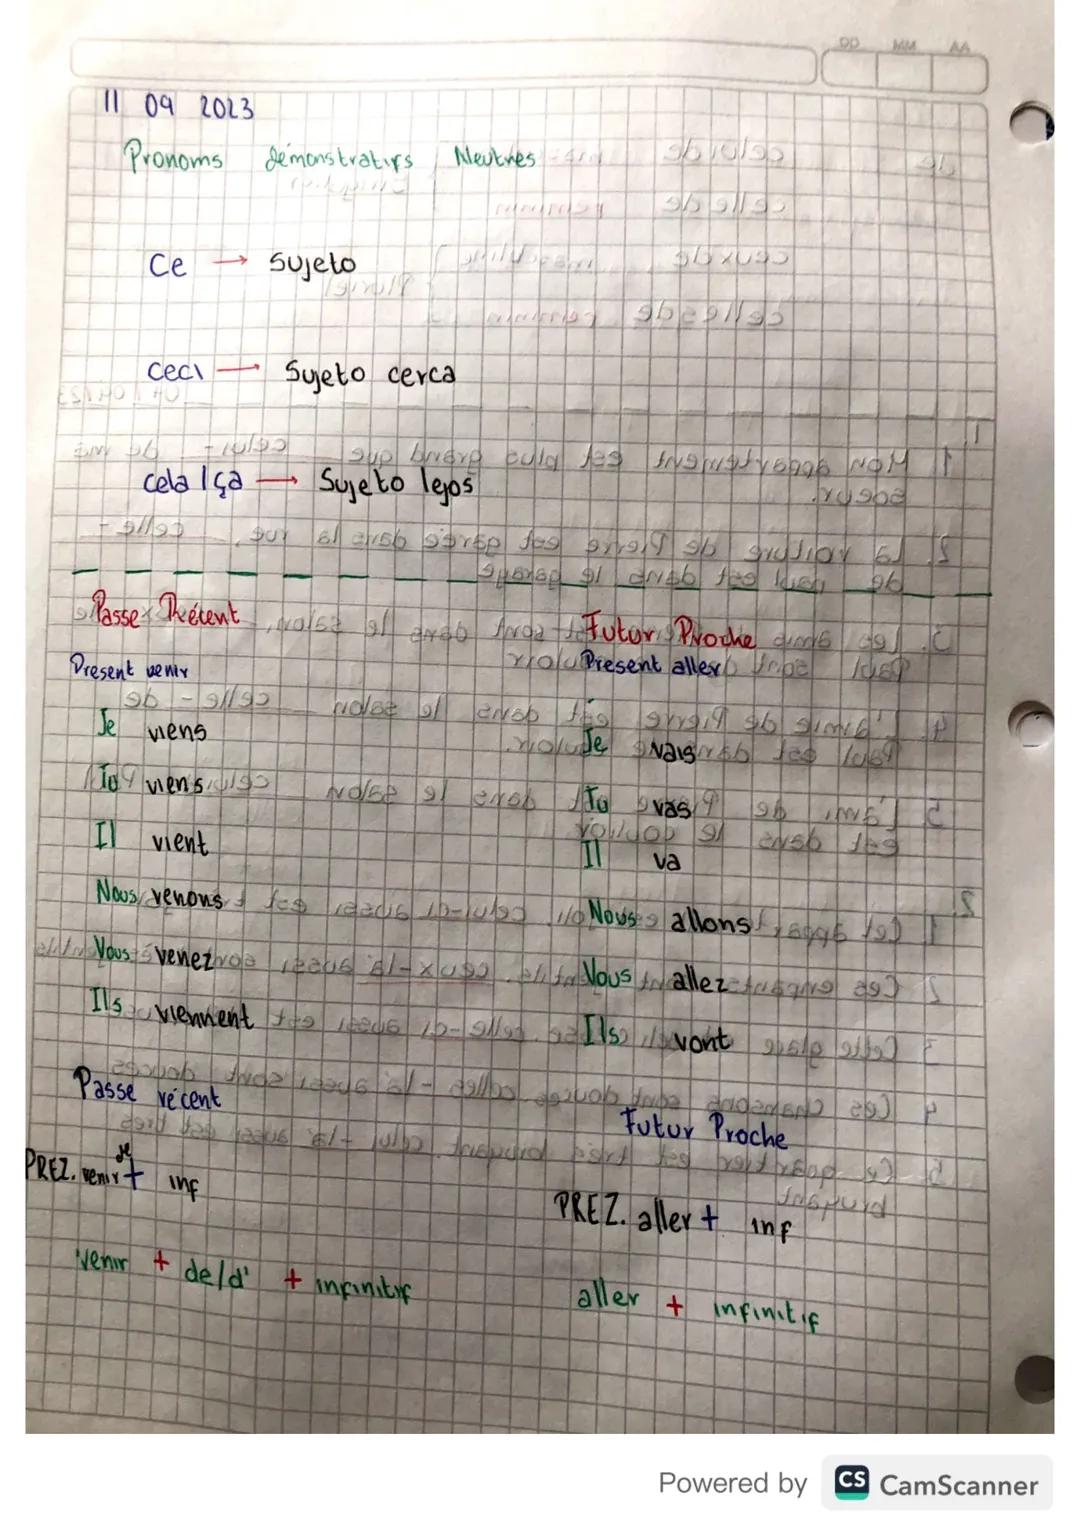 DD MM AA
11 09 2023
Pronoms démonstratifs Neutres
Ce → Sujeto
Ceci → Sujeto cerca
cela / ça → Sujeto lejos
Passe Récent
Present venir
Je viens
Tu viens
Il vient
Nous venons
Vous venez
Ils viennent
Passe récent
PREZ. venir + de inf
venir + de/d' + infinitif
Futur Proche
Present aller
Je vais
Tu vas
Il va
Nous allons
Vous allez
Ils vont
Futur Proche
PREZ. aller + inf
aller + infinitif
Powered by CS CamScanner